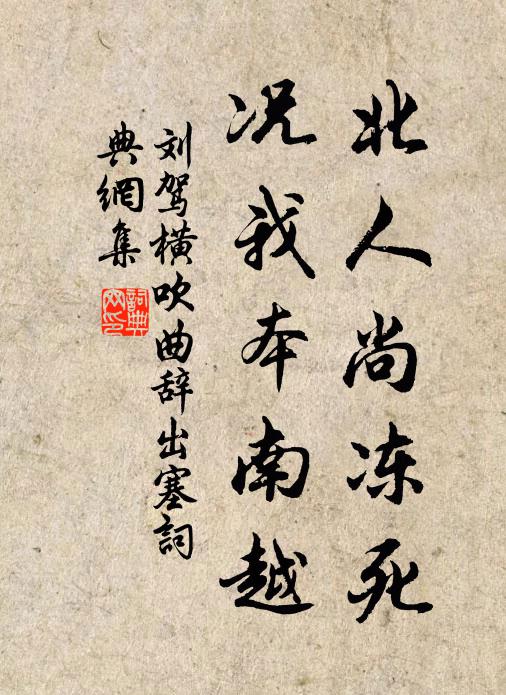 北人尚冻死
况我本南越
刘驾横吹曲辞出塞詞
典網集
詞典网印